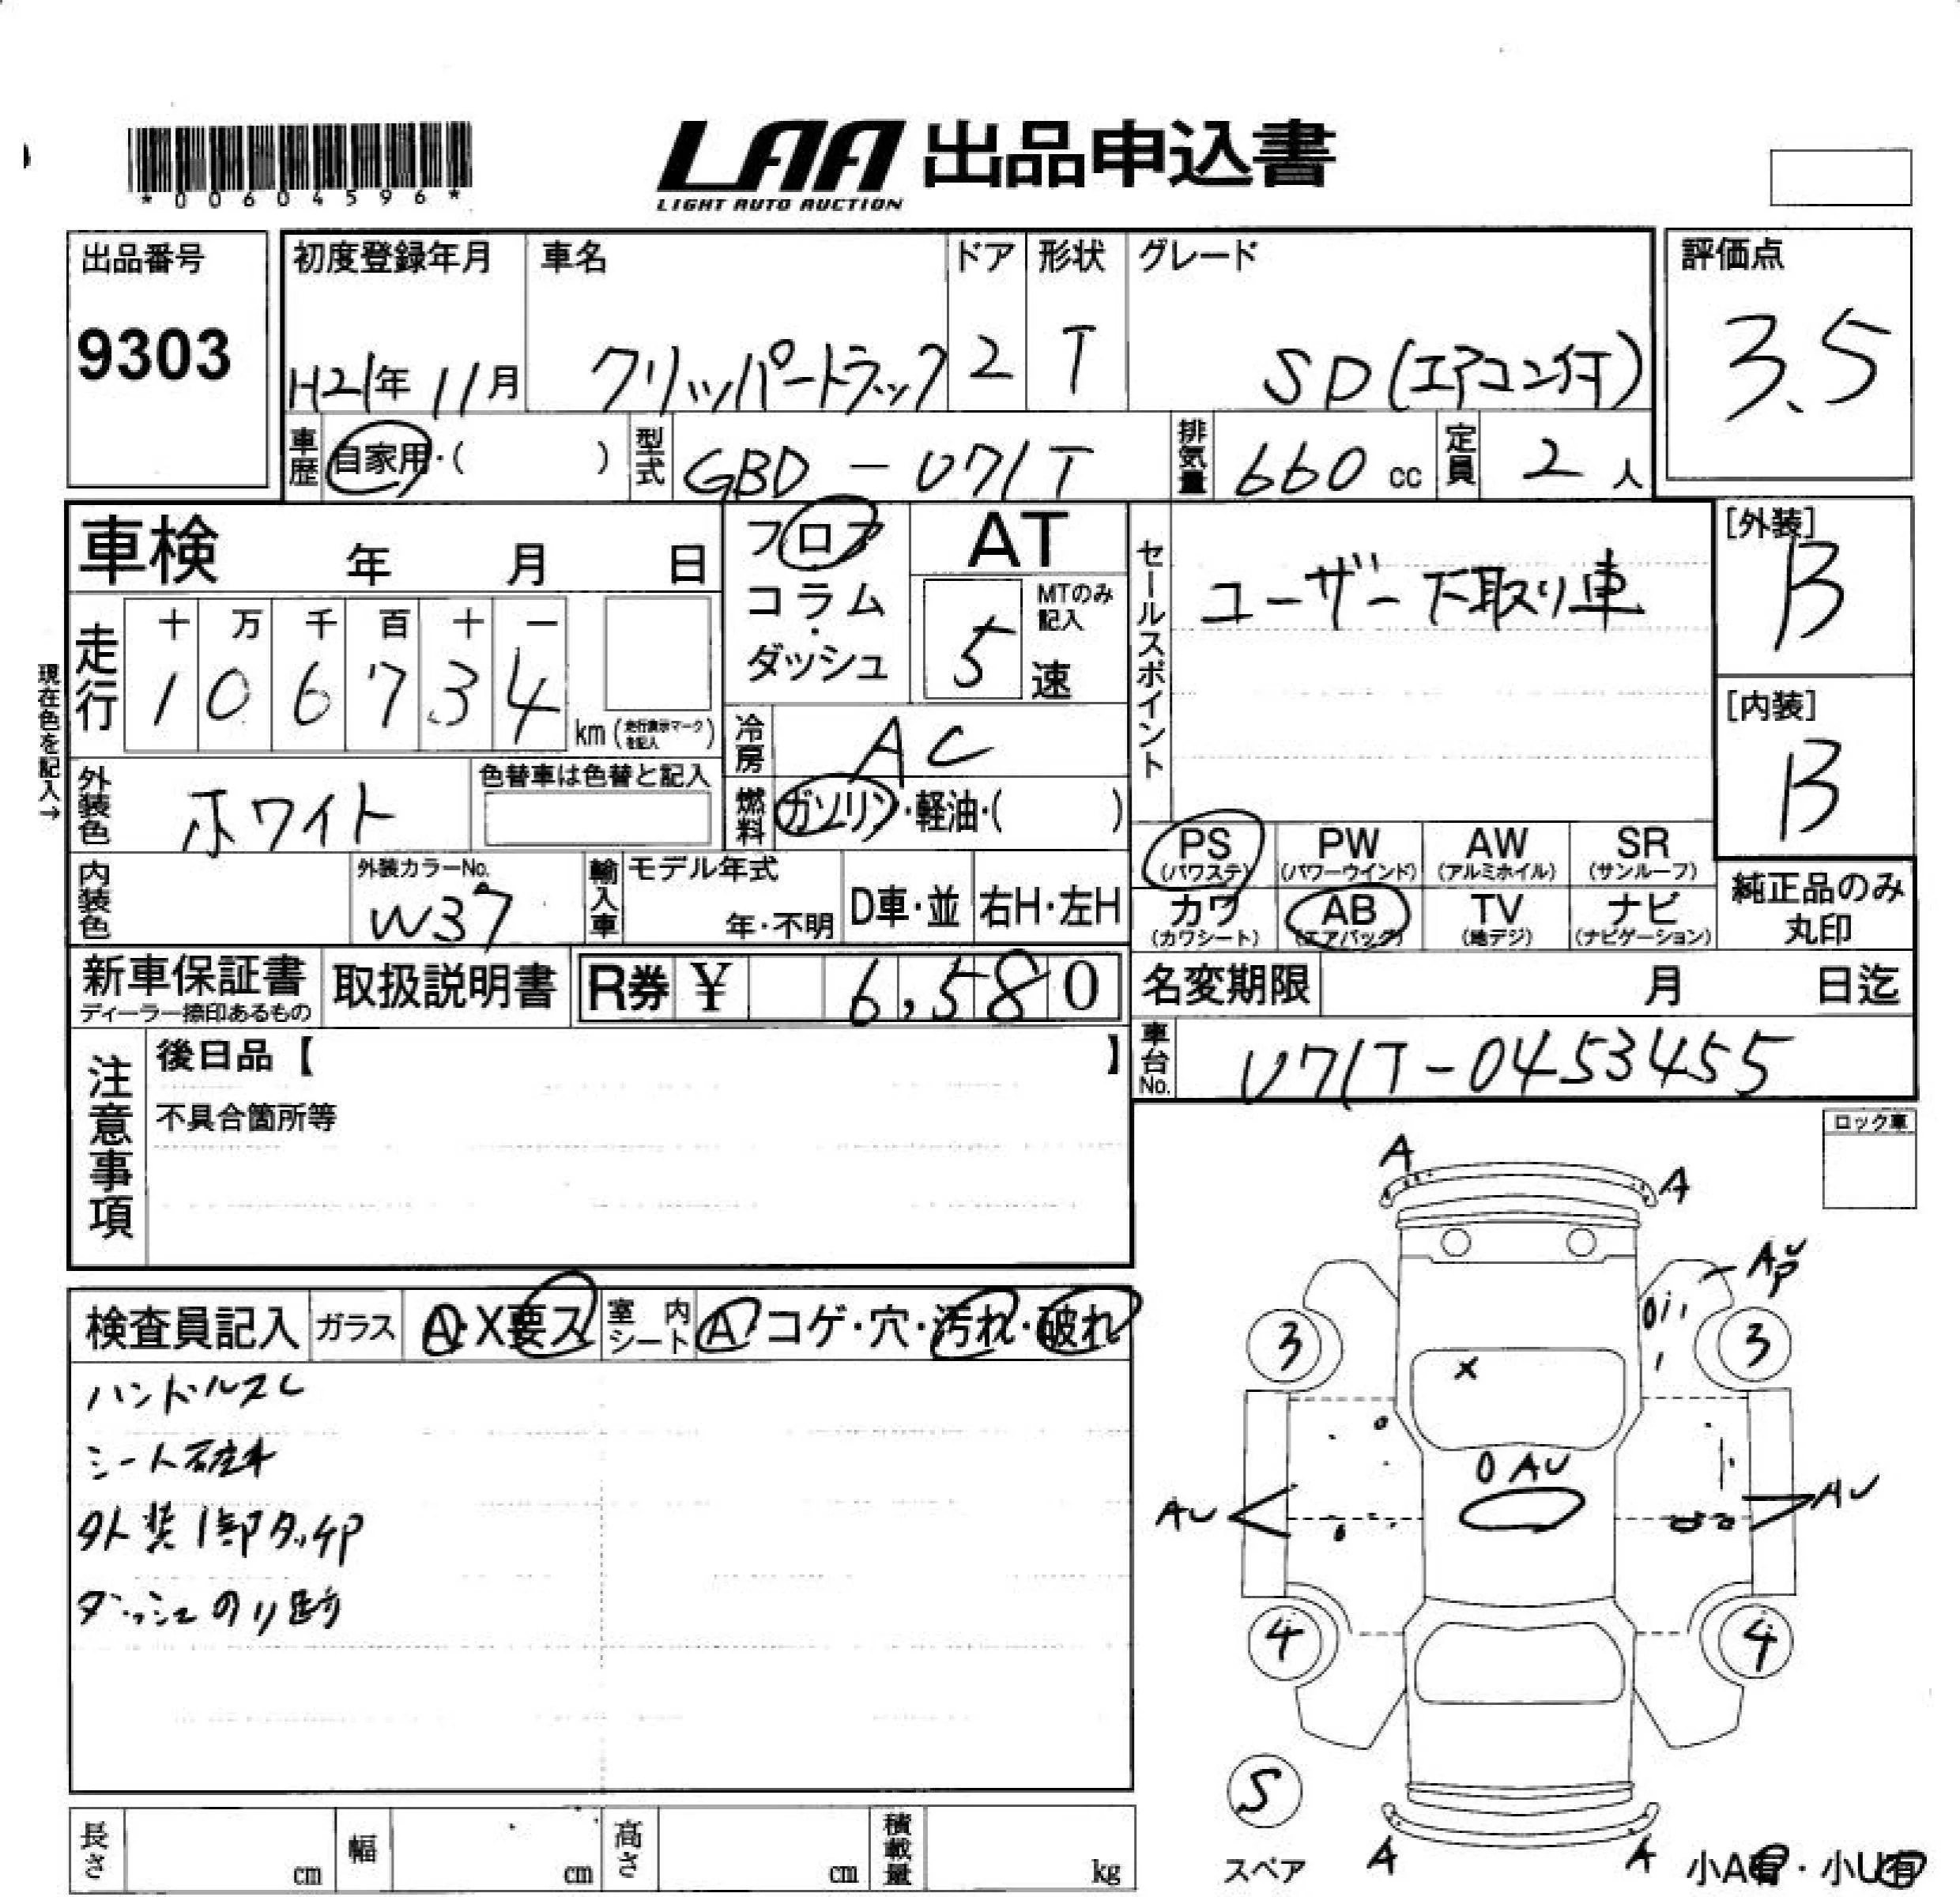 *00604596*
LAA 出品申込書
LIGHT AUTO AUCTION
出品番号
9303
初度登録年月
H21年 11月
車名
クリッパートラック
ドア
2
形状
T
グレード
SD(エアコン付)
評価点
3.5
車歴
自家用・( )
型式
GBD-U71T
排気量
660 cc
定員
2 人
車検 年 月 日
フロア
コラム
・
ダッシュ
AT
MTのみ
記入
5 速
セールスポイント
ユーザー下取り車
[外装]
B
[内装]
B
現在色を記入→
走行
十 万 千 百 十 一
1 0 6 7 3 4
km (走行表示マークを記入)
冷房
AC
外装色
ホワイト
色替車は色替と記入
燃料
ガソリン・軽油・( )
内装色
外装カラーNo.
W37
輸入車
モデル年式
年・不明
D車・並
右H・左H
PS
(パワステ)
PW
(パワーウインド)
AW
(アルミホイル)
SR
(サンルーフ)
カワ
(カワシート)
AB
(エアバッグ)
TV
(地デジ)
ナビ
(ナビゲーション)
純正品のみ
丸印
新車保証書
ディーラー捺印あるもの
取扱説明書
R券 ¥ 6,580
名変期限 月 日迄
車台No.
U71T-0453455
注意事項
後日品【 】
不具合箇所等
ロック車
検査員記入
ガラス
A・X要ス
室内
シート
A・コゲ・穴・汚れ・破れ
ハンドルスレ
シート破れ
外装1部タッチP
ダッシュのり跡
A
A
AU
P
3
3
X
AU
AU
AU
4
4
S
スペア
A
A
小A有・小U有
長さ
cm
幅
cm
高さ
cm
積載量
kg